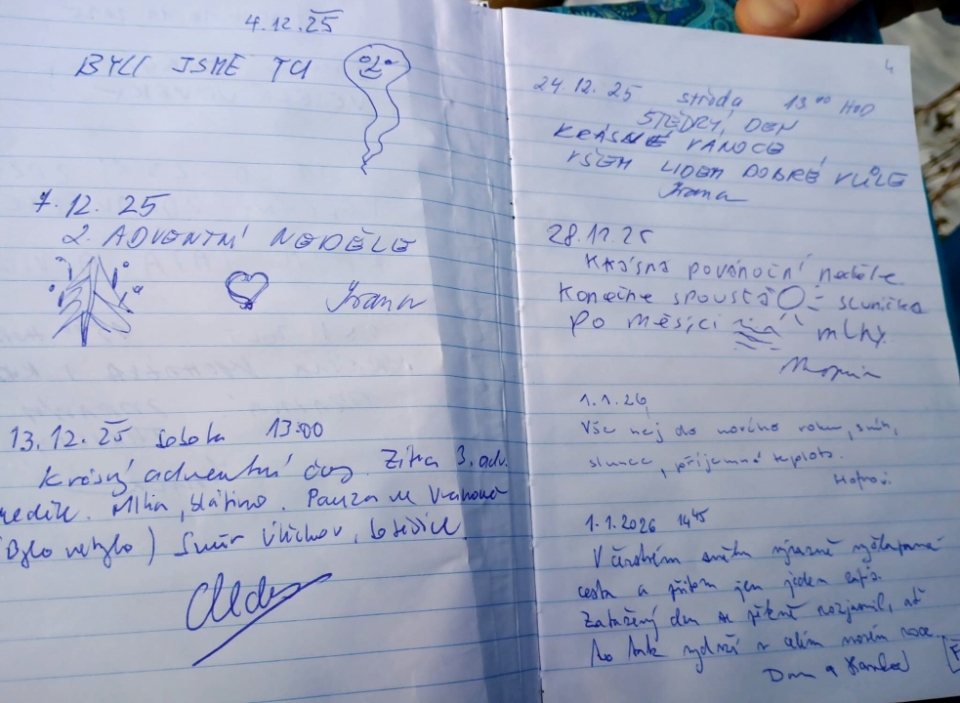 4.12.25
BYLI JSME TU
7.12.25
2. ADVENTNÍ NEDĚLE
Ivana
13.12.25 sobota 13:00
Krásný adventní čas. Zítra 3. adv.
neděle. Mlha, blátivo. Pauza
(Bylo nebylo) Směr
4
24.12.25 středa 13 00 HOD
ŠTĚDRÝ DEN
KRÁSNÉ VÁNOCE
VŠEM LIDEM DOBRÉ VŮLE
Ivana
28.12.25
Krásná povánoční neděle
Konečne spousta sluníčka
po měsíci mlhy.
1.1.26
Vše nej do nového roku, sníh,
slunce, příjemná teplota.
1.1.2026 14 45
V čerstvém sněhu výrazně vyšlapaná
cesta a přitom jen jeden zápis.
Zatažený den se pěkně rozjasnil, ať
to tak vydrží v celém novém roce.